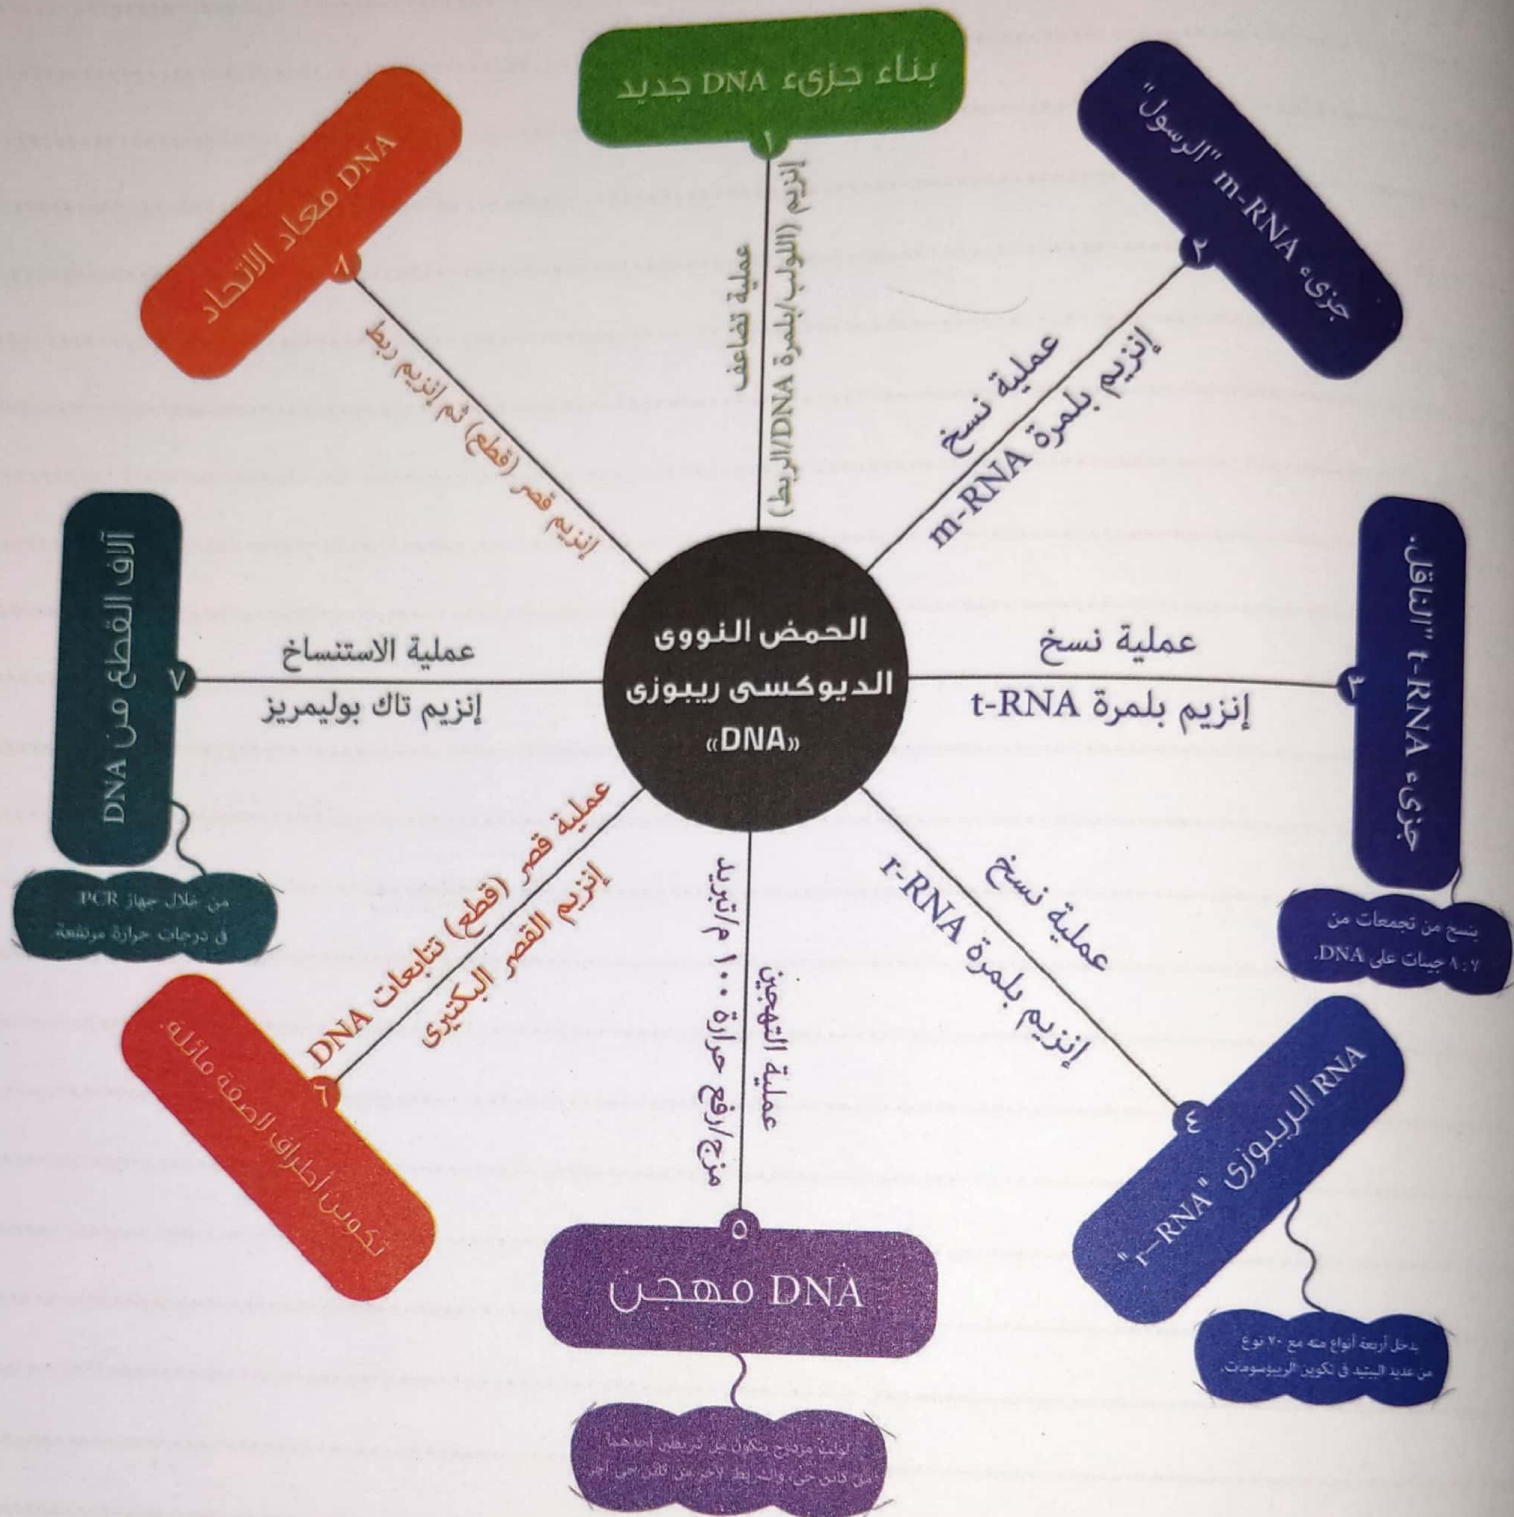 الحمض النووى
الديوكسى ريبوزى
«DNA»
بناء جزىء DNA جديد
١
إنزيم (اللولب/بلمرة DNA/الربط)
عملية تضاعف
جزىء m-RNA "الرسول"
٢
عملية نسخ
إنزيم بلمرة m-RNA
جزىء t-RNA "الناقل.
٣
عملية نسخ
إنزيم بلمرة t-RNA
ينسخ من تجمعات من
٧ : ٨ جينات على DNA.
RNA الريبوزى "r-RNA"
٤
عملية نسخ
إنزيم بلمرة r-RNA
يدخل أربعة أنواع منه مع ٧٠ نوع
من عديد الببتيد فى تكوين الريبوسومات.
DNA مهجن
٥
عملية التهجين
مزج/رفع حرارة ١٠٠ م/تبريد
لولب مزدوج يتكون من شريطين أحدهما
من كائن حى، والشريط الآخر من كائن حى آخر
تكوين أطراف لاصقة مائلة.
٦
عملية قصر (قطع) تتابعات DNA
إنزيم القصر البكتيرى
آلاف القطع من DNA
٧
عملية الاستنساخ
إنزيم تاك بوليمريز
من خلال جهاز PCR
فى درجات حرارة مرتفعة.
DNA معاد الاتحاد
٨
إنزيم قصر (قطع) ثم إنزيم ربط